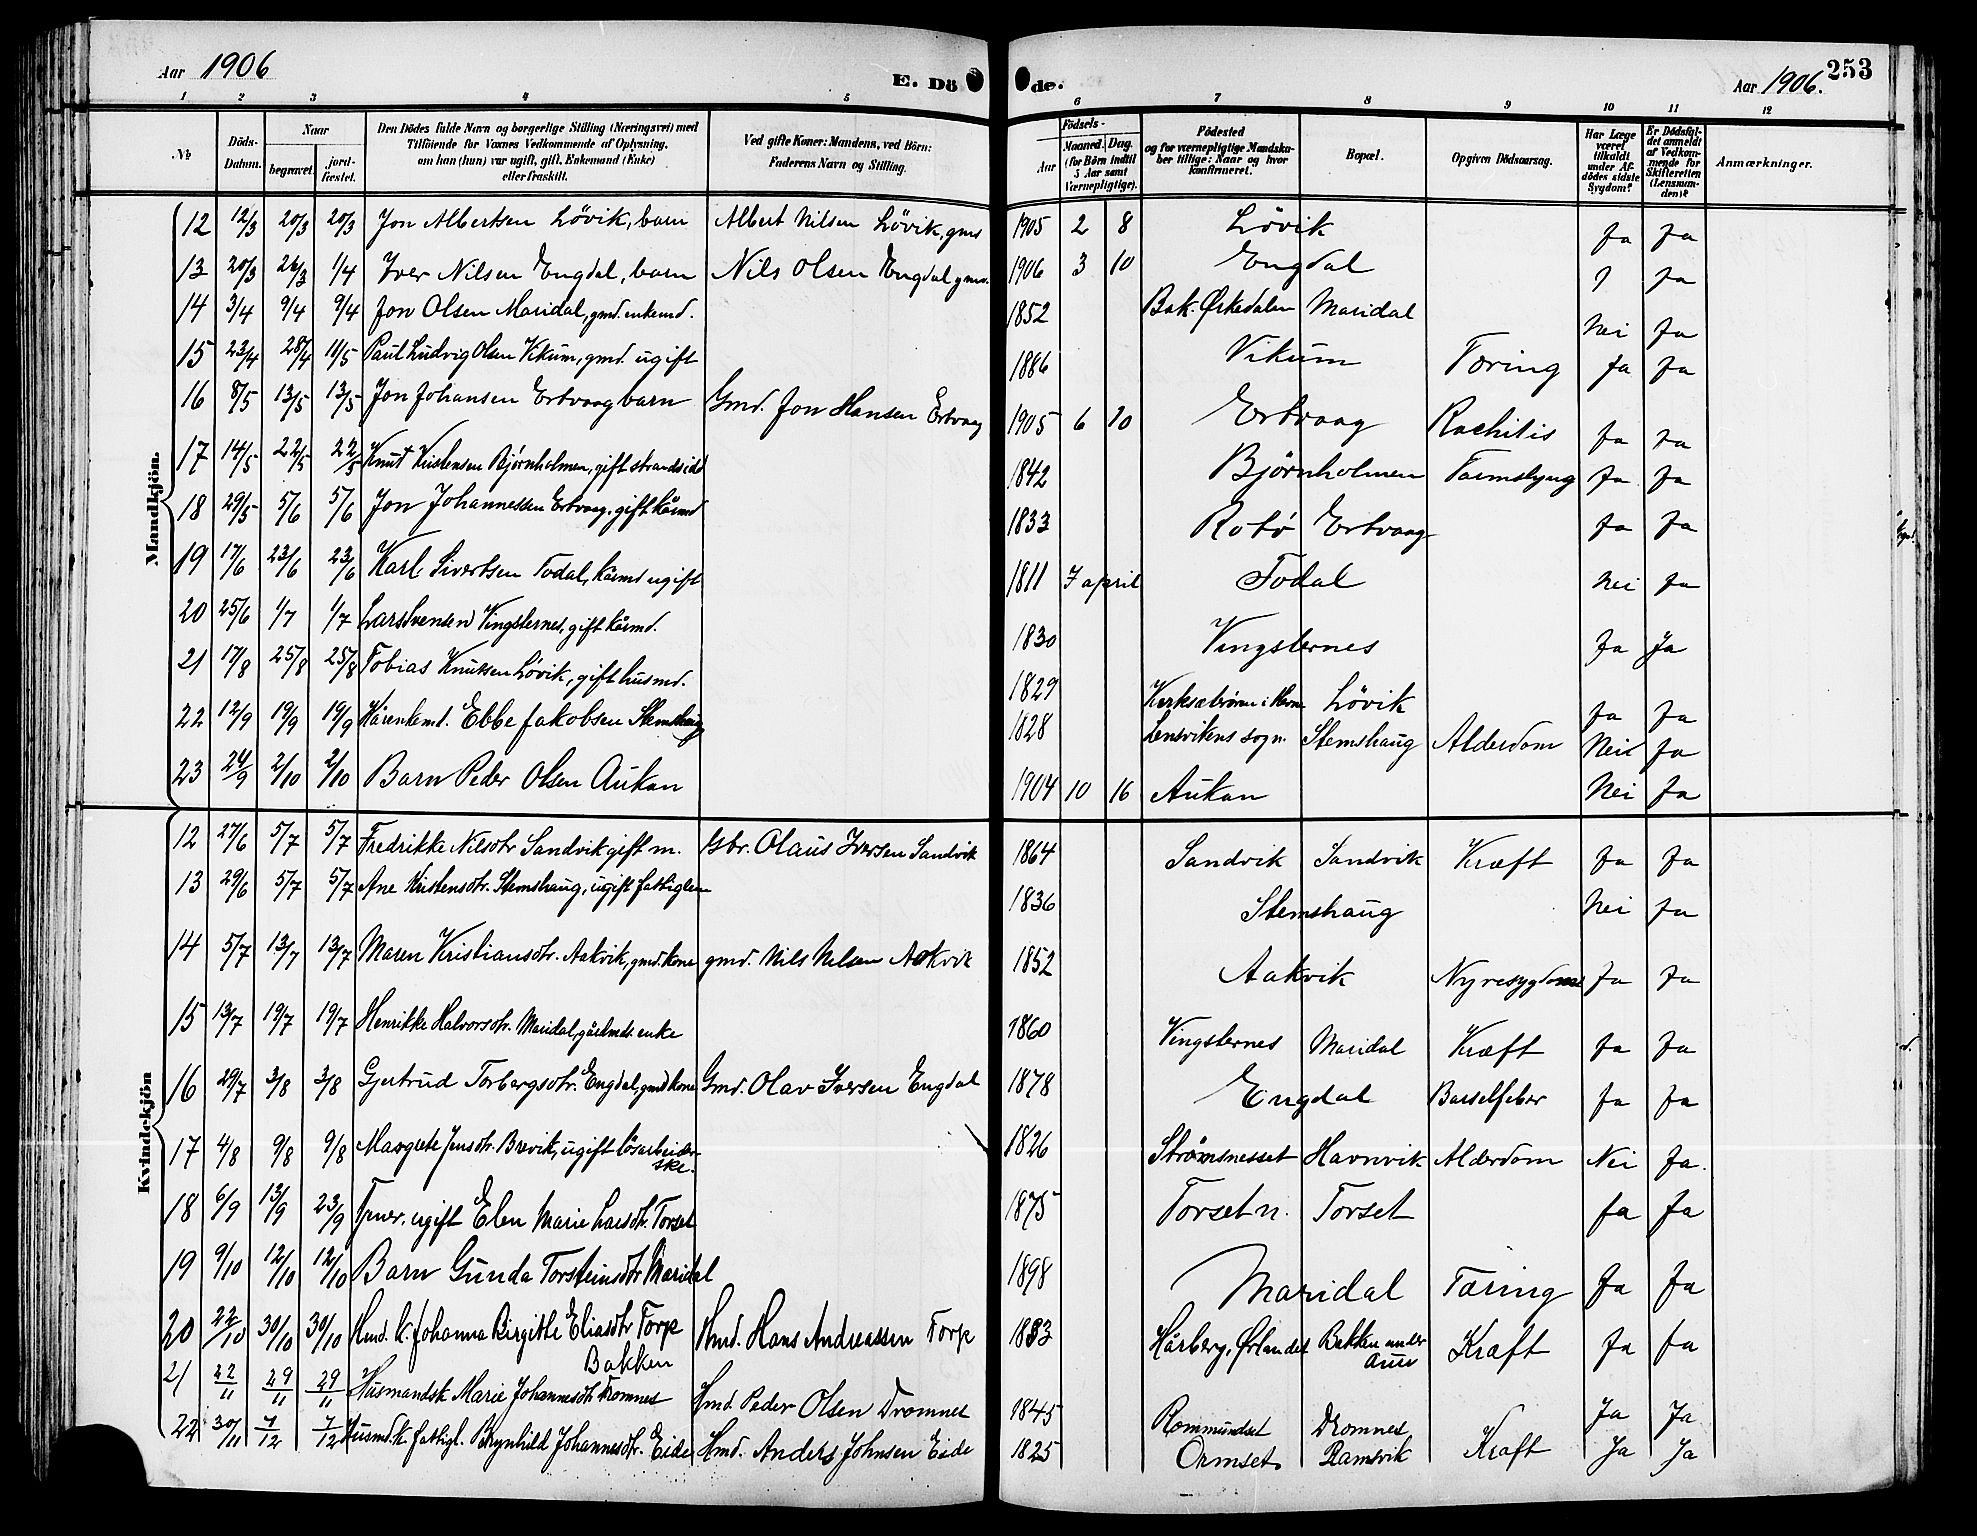 Aar 1906
E. Dö de.
Aar 1906.
253
1 2 3 4 5 6 7 8 9 10 11 12
No
Döds-Datum.
Naar
begravet.
jord-fæstet.
Den Dödes fulde Navn og borgerlige Stilling (Næringsvei) med Tilföiende for Voxnes Vedkommende af Oplysning, om han (hun) var ugift, gift, Enkemand (Enke) eller fraskilt.
Ved gifte Koner: Mandens, ved Börn: Faderens Navn og Stilling.
Födsels-
Aar
Maaned. Dag.
(for Börn indtil 5 Aar samt Værnepligtige).
Födested og for værnepligtige Mandskaber tillige: Naar og hvor konfirmeret.
Bopæl.
Opgiven Dödsaarsag.
Har Læge været tilkaldt under Afdödes sidste Sygdom?
Er Dödsfaldet anmeldt af Vedkommende for Skifteretten (Lensmanden)?
Anmærkninger.
Mandkjön.
12 12/3 20/3 20/3 Jon Albertsen Lövik, barn Albert Nilsen Lövik, gmd 1905 2 8 Lövik Ja Ja
13 20/3 26/3 1/4 Iver Nilsen Engdal, barn Nils Olsen Engdal gmd. 1906 3 10 Engdal Ja
14 3/4 9/4 9/4 Jon Olsen Maridal, gmd. enkemd. 1852 Bak. Ørkedalen Maridal Nei Ja
15 23/4 28/4 11/5 Paul Ludvig Olsen Vikum, gmd. ugift 1886 Vikum Tæring Ja Ja
16 8/5 13/5 13/5 Jon Johansen Ertvaag barn Gmd. Jon Hansen Ertvaag 1905 6 20 Ertvaag Rachitis Ja Ja
17 14/5 22/5 22/5 Knut Kristensen Bjørnholmen, gift strandsid 1842 Bjørnholmen Tarmslyng Ja Ja
18 29/5 5/6 5/6 Jon Johannessen Ertvaag. gift kårmd 1833 Rotö Ertvaag Ja Ja
19 17/6 23/6 23/6 Karl Sivertsen Todal, kårmd ugift 1811 7 april Todal Nei Ja
20 25/6 1/7 1/7 Lars Svensen Vingsternes, gift kårmd. 1830 Vingsternes Ja Ja
21 17/8 25/8 25/8 Tobias Knutsen Lövik, gift husmd. 1829 Lövik Ja Ja
22 12/9 19/9 19/9 Kårenkemd. Ebbe Jakobsen Stemshaug 1828 Lensvikens sogn. Stemshaug Alderdom Nei Ja
23 24/9 2/10 2/10 Barn Peder Olsen Aukan 1904 10 16 Aukan Nei Ja
Kvindekjön
12 27/6 5/7 5/7 Fredrikke Nilsdtr Sandvik gift m. Gbr. Olaus Iversen Sandvik 1864 Sandvik Sandvik Kræft Ja Ja
13 29/6 5/7 5/7 Ane Kristensdtr. Stemshaug, ugift fattiglem 1836 Stemshaug Nei Ja
14 5/7 13/7 13/7 Maren Kristiansdtr. Aakvik, gmd. kone gmd. Nils Nilsen Aakvik 1852 Aakvik Nyresygdom Ja Ja
15 13/7 19/7 19/7 Henrikke Halvorsdtr. Maridal, gårdmds enke 1860 Vingsternes Maridal Kræft Ja Ja
16 29/7 3/8 3/8 Gjertrud Torbergsdtr. Engdal, gmd kone Gmd. Olav Iversen Engdal 1878 Engdal Barselfeber Ja Ja
17 4/8 9/8 9/8 Margrete Jensdtr. Brevik, ugift lösarbeiderske. 1826 Strømsnesset Havnvik Alderdom Nei Ja.
18 6/9 13/9 23/9 ugift Elen Marie Larsdtr. Torset 1875 Torset n. Torset Ja Ja
19 9/10 12/10 12/10 Barn Gunda Torsteinsdtr Maridal 1898 Maridal Tæring Ja Ja
20 22/10 30/10 30/10 Hmd. k. Johanna Birgitte Eliasdtr Torp Bakken Hmd. Hans Andreassen Torp 1883 Hårberg, Ørlandet Bakken under Aure Kræft Ja Ja
21 22/11 29/11 29/11 Husmandsk Marie Johannesdtr Dromnes Hmd. Peder Olsen Dromnes 1845 Rommundset Dromnes Ja Ja
22 30/11 7/12 7/12 Husmd.k. fattigl. Brynhild Johannesdtr. Eide Hmd. Anders Johnsen Eide 1825 Ormset Ramsvik Kræft Ja Ja